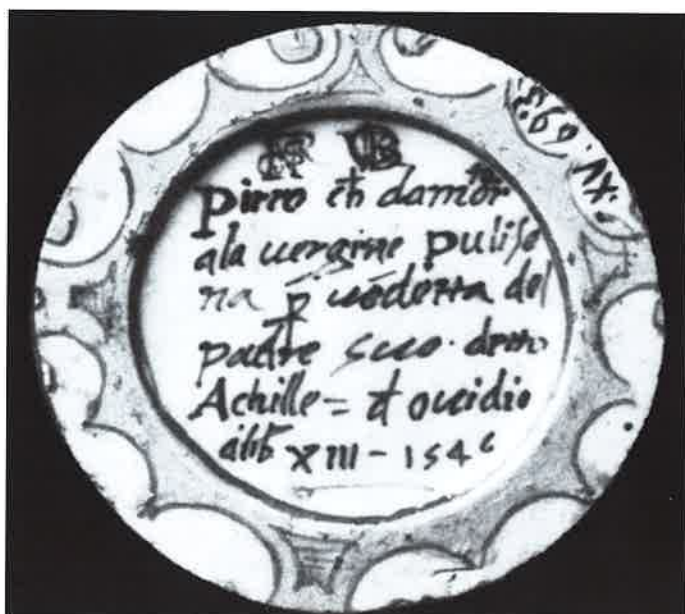 pirro ch̄ damor
ala uergine pulise
na p̄ uēdetta del
padre suo · detto
Achille = đ ouidio
XIII - 154